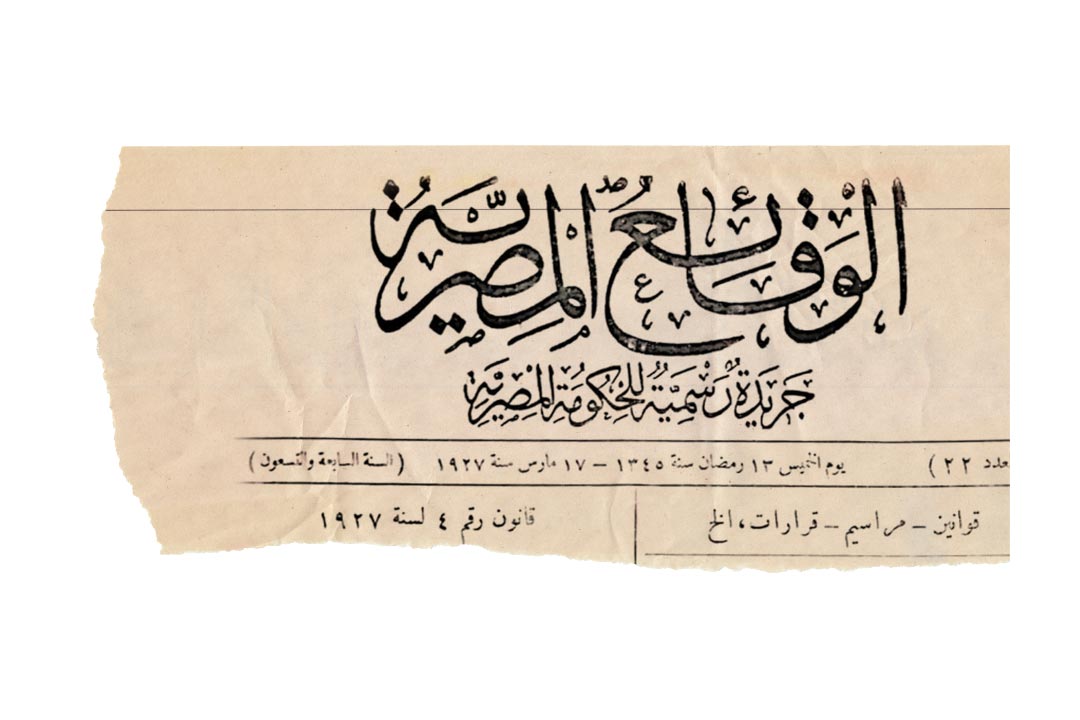 الوقائع المصرية
جَرِيدَة رَسْمِيَّة لِلحُكُومَة المِصْرِيَّة
عدد ٢٢) يوم الخميس ١٣ رمضان سنة ١٣٤٥ – ١٧ مارس سنة ١٩٢٧ (السنة السابعة والتسعون)
قوانين – مراسيم – قرارات، الخ
قانون رقم ٤ لسنة ١٩٢٧